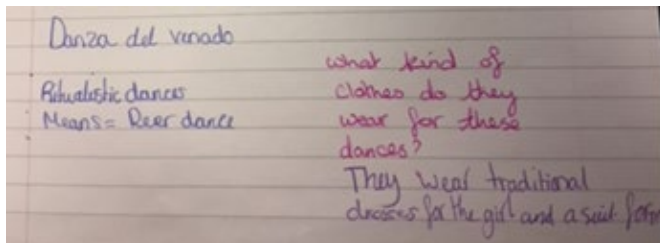 Danza del venado
Ritualistic dances
Means = Deer dance
what kind of
clothes do they
wear for these
dances?
They wear traditional
dresses for the girl and a suit for